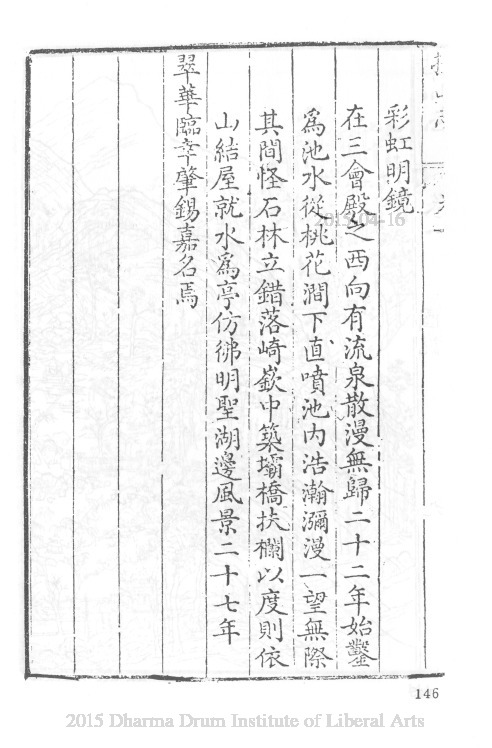 彩虹明鏡
在三會殿之西向有流泉散漫無歸二十二年始鑿
為池水從桃花澗下直噴池內浩瀚瀰漫一望無際
其間怪石林立錯落崎嶔中築壩橋扶欄以度則依
山結屋就水為亭仿彿明聖湖邊風景二十七年
翠華臨幸肇錫嘉名焉
146
2015 Dharma Drum Institute of Liberal Arts